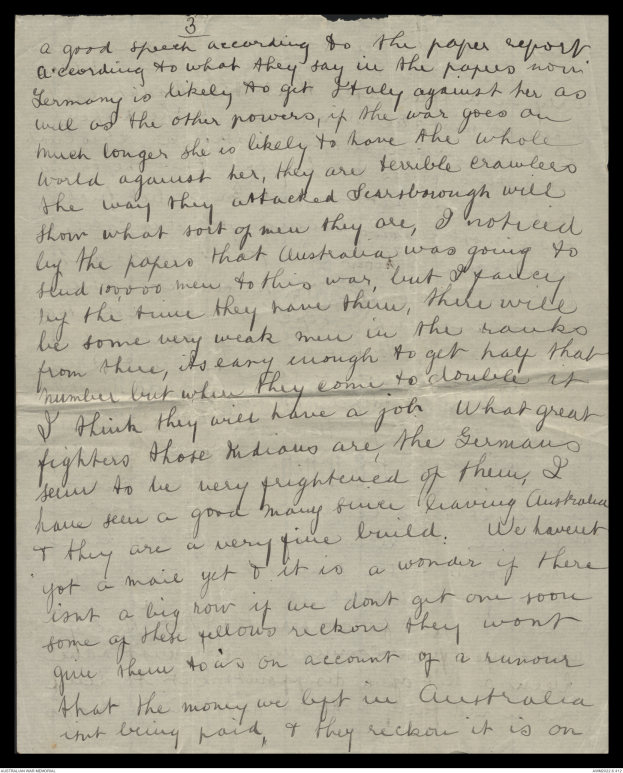 3
a good speech according to the paper report
according to what they say in the papers now
Germany is likely to get Italy against her as
well as the other powers, if the war goes on
much longer she is likely to have the whole
world against her, they are terrible crawlers
the way they attacked Scarsborough will
show what sort of men they are, I noticed
by the papers that Australia was going to
send 100,000 men to this war, but I fancy
by the time they have them, there will
be some very weak men in the ranks
from there, its easy enough to get half that
number but when they come to double it
I think they will have a job. What great
fighters those Indians are, the Germans
seem to be very frightened of them, I
have seen a good many since leaving Australia
& they are a very fine build. We havent
got a mail yet & it is a wonder if there
isnt a big row if we dont get one soon
some of these fellows reckon they wont
give them to us on account of a rumour
that the money we left in Australia
isnt being paid, & they reckon it is on
AUSTRALIAN WAR MEMORIAL